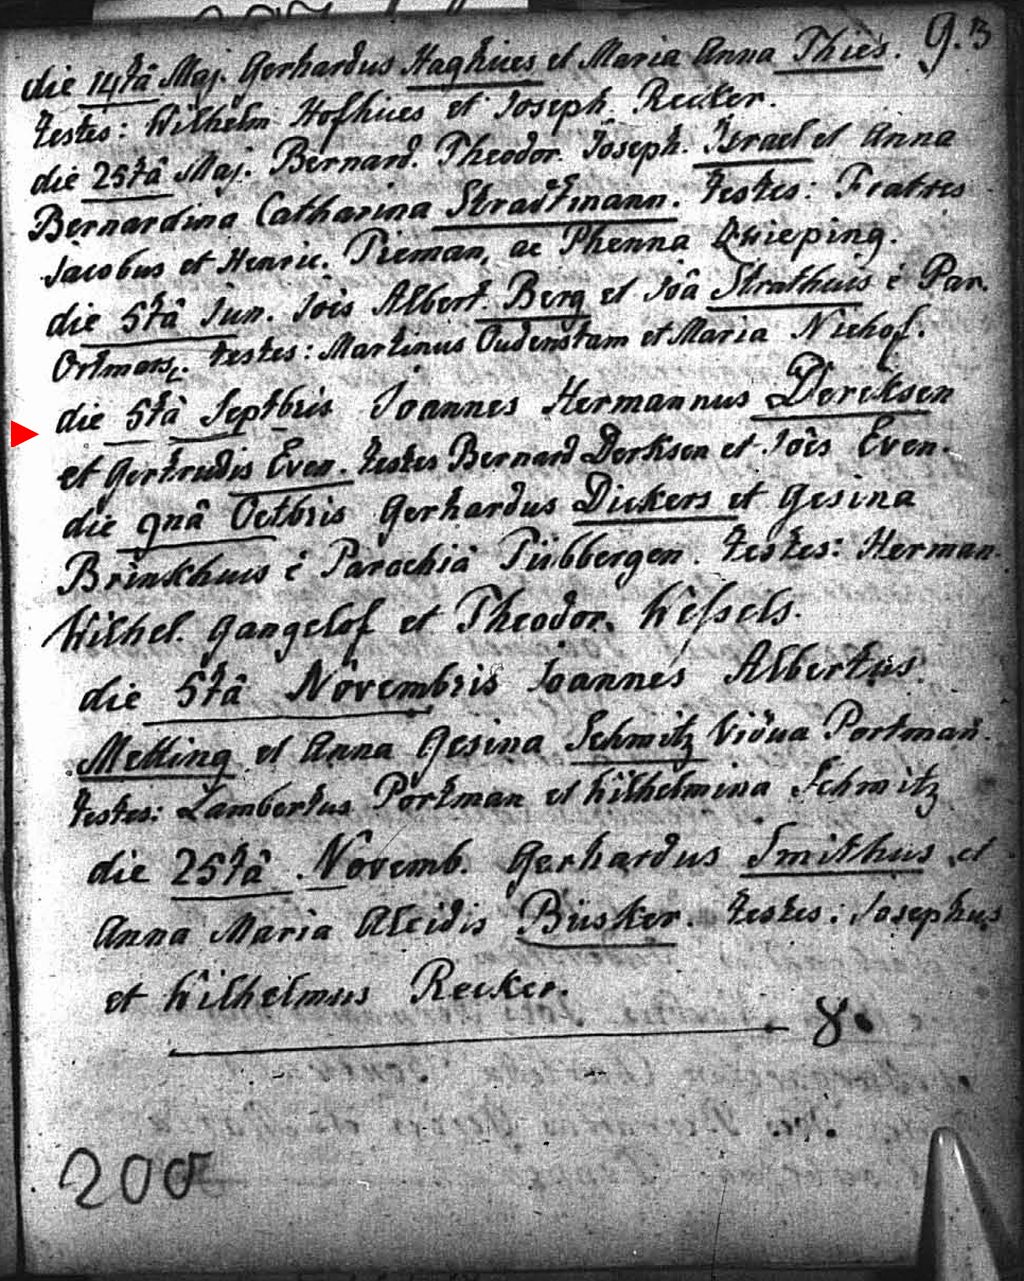 93
die 14tâ Maj. Gerhardus Haghues et Maria Anna Thies.
testes: Wilhelm Hofhues et Joseph. Recker.
die 25tâ Maj. Bernard. Theodor. Joseph. Israel et Anna
Bernardina Catharina Stradtmann. testes: Fratres
Jacobus et Henric. Pieman, ac Phenna Qwieping.
die 5tâ Jun. Jois Albert. Berg et Joâ Strathuis è Par.
Ortmars. testes: Martinus Oudenstam et Maria Niehof.
die 5tâ Septbris Joannes Hermannus Dercksen
et Gertrudis Even. testes Bernard Derksen et Jois Even.
die 9nâ Octbris Gerhardus Dickers et Gesina
Brinkhuis è Parochiâ Tübbergen. testes: Herman.
Wilhel. Gangelof et Theodor. Wessels.
die 5tâ Novembris Joannes Albertus
Metting et Anna Gesina Schmitz vidua Portman.
testes: Lambertus Portman et Wilhelmina Schmitz
die 25tâ Novemb. Gerhardus Smithuis et
Anna Maria Aleidis Büsker. testes: Josephus
et Wilhelmus Recker.
8.
200